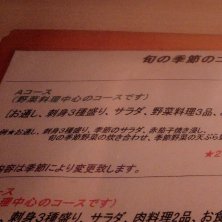 旬の季節のコ
Aコース
(野菜料理中心のコースです)
(お通し、刺身3種盛り、サラダ、野菜料理3品、
例★お通し、刺身3種盛り、季節のサラダ、赤茄子焼き浸し、
旬の季節野菜の炊き合わせ、季節野菜の天ぷら
★2
内容は季節により変更致します。
ース
中心のコースです)
刺身3種盛り、サラダ、肉料理2品、お